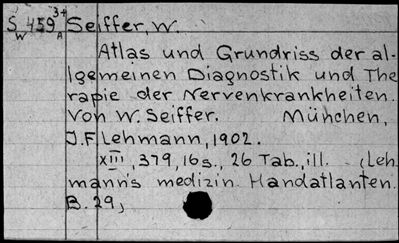 S 459 3+ Seiffer, W.
W A
Atlas und Grundriss der al-
lgemeinen Diagnostik und The
rapie der Nervenkrankheiten.
Von W. Seiffer. München,
J.F. Lehmann, 1902.
XIII, 379, 16 s., 26 Tab., ill. (Leh
mann's medizin. Handatlanten.
B. 29,